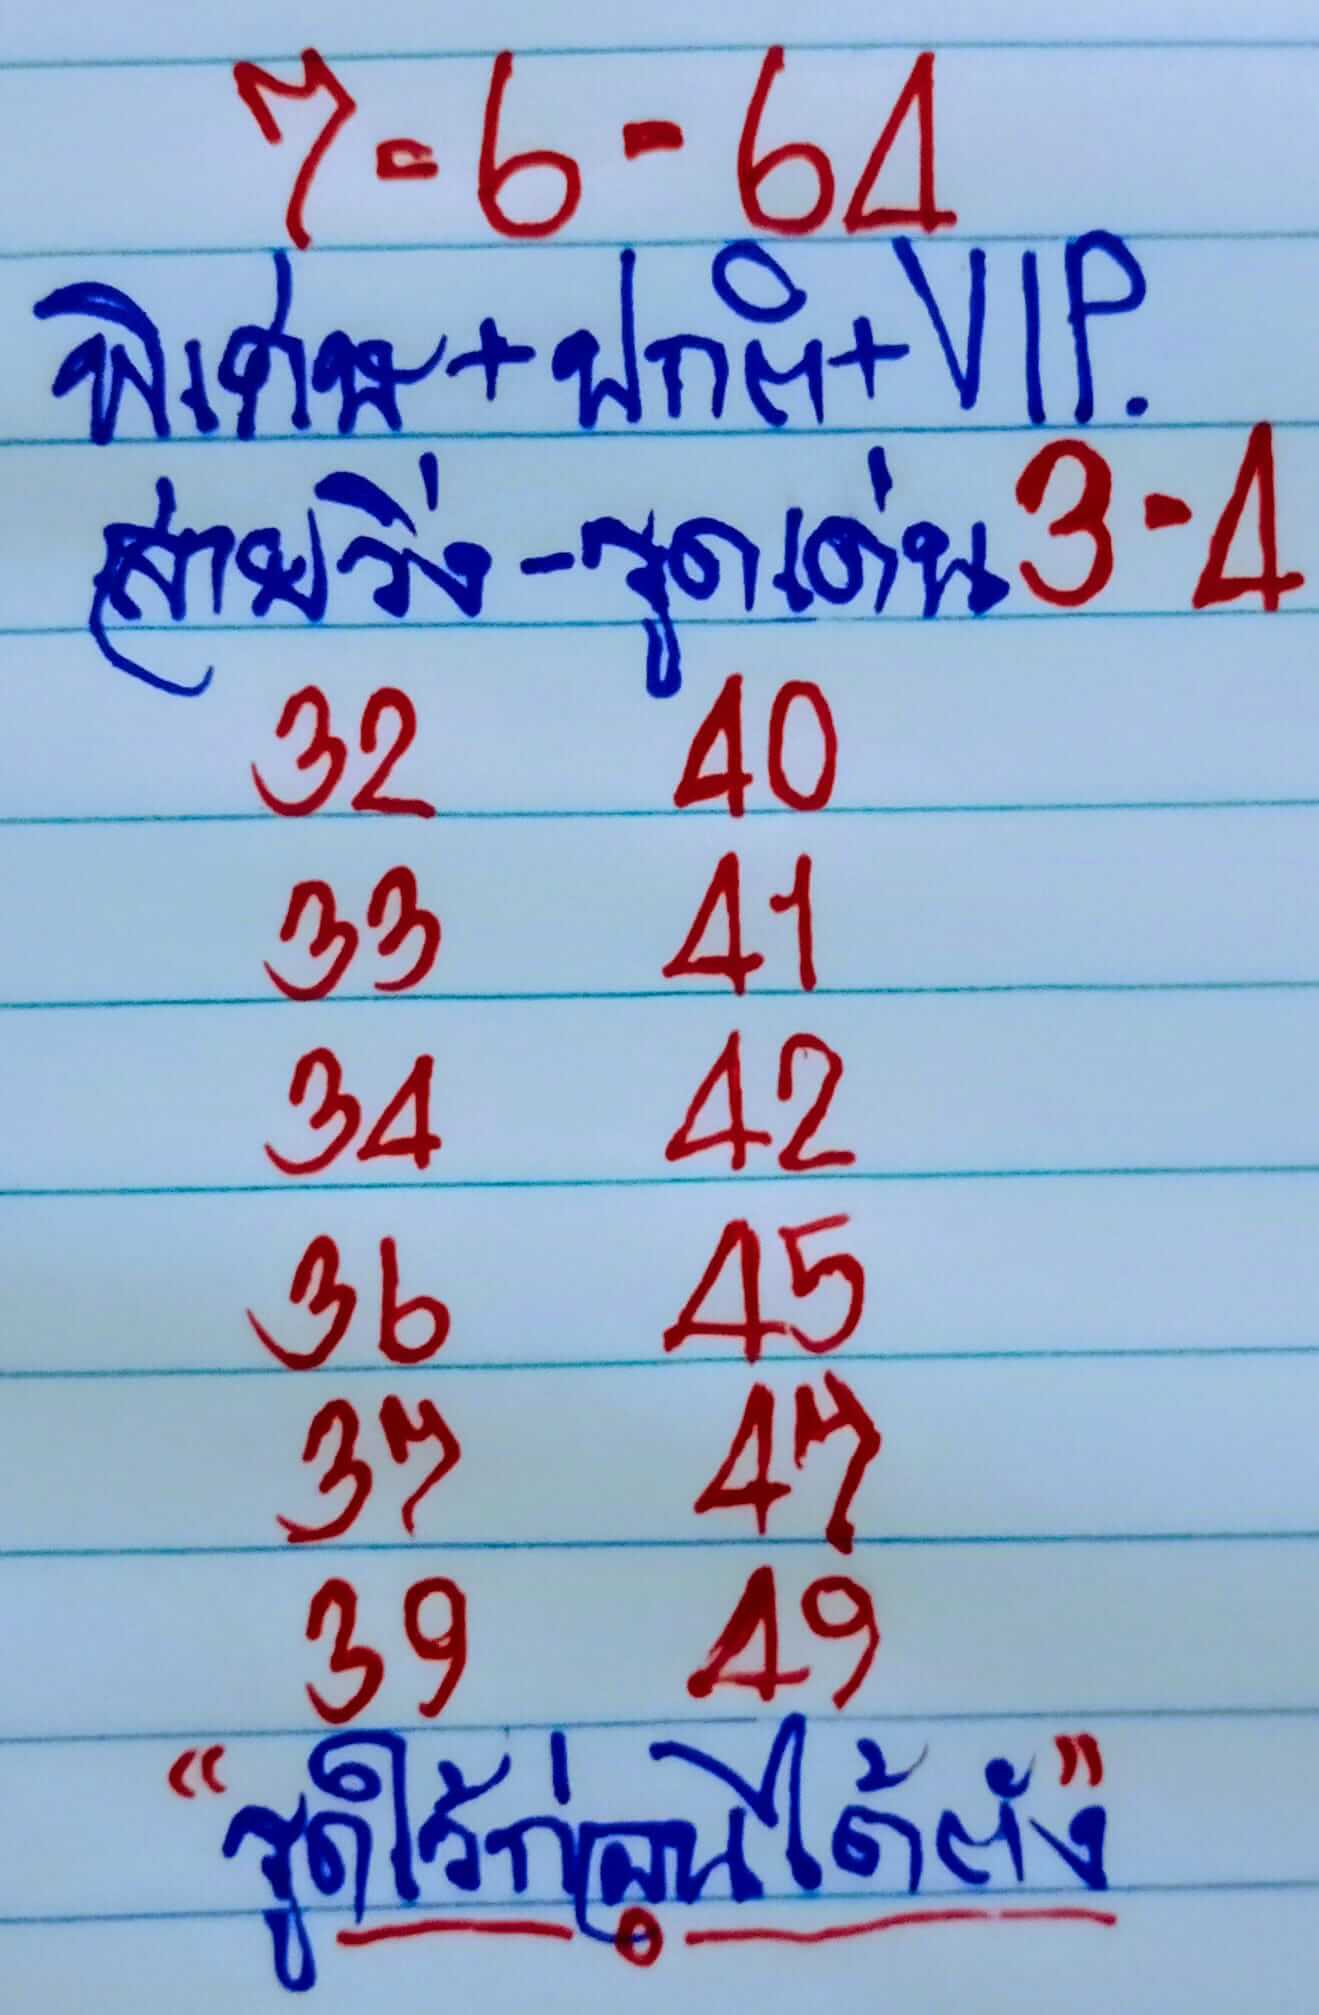 7-6-64
พิเศษ+ปกติ+VIP.
สายวิ่ง-ชุดเด่น 3-4
32 40
33 41
34 42
36 45
37 47
39 49
"ชุดใว้ก่อนได้ตัง"